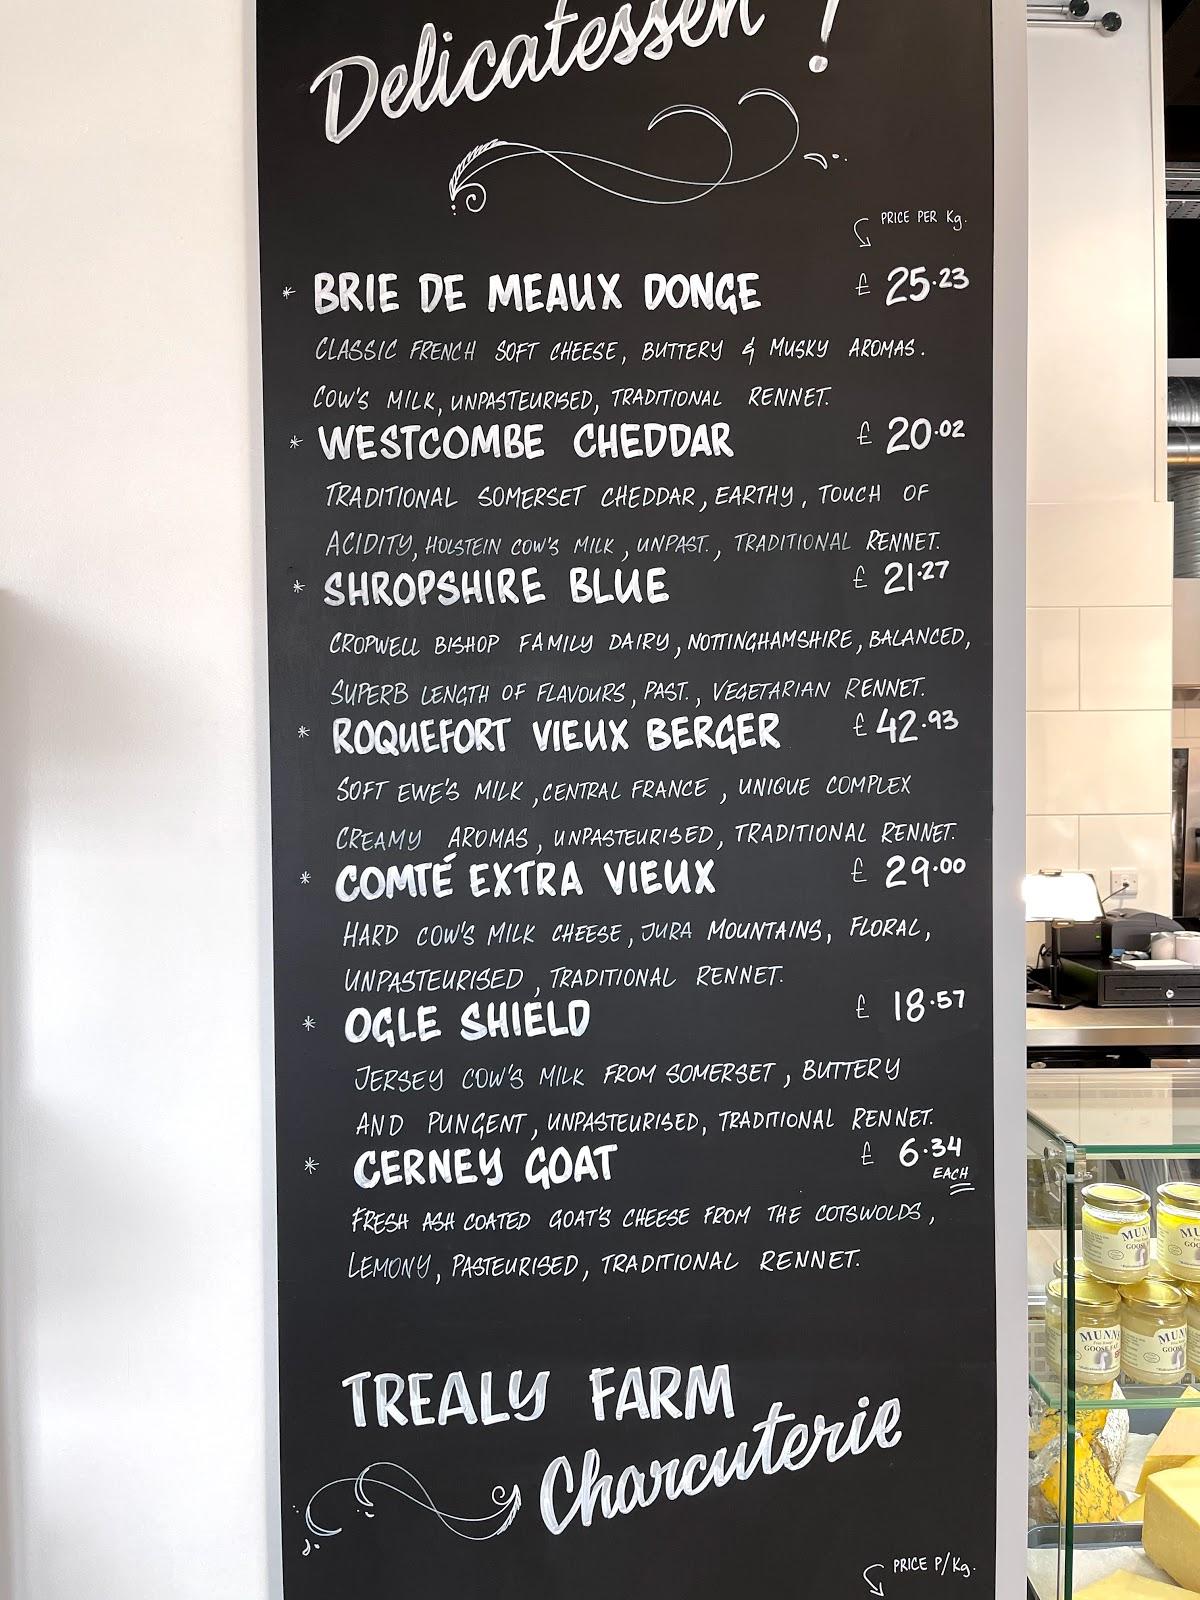 Delicatessen !
PRICE PER Kg.
* BRIE DE MEAUX DONGE £ 25.23
CLASSIC FRENCH SOFT CHEESE, BUTTERY & MUSKY AROMAS.
COW'S MILK, UNPASTEURISED, TRADITIONAL RENNET.
* WESTCOMBE CHEDDAR £ 20.02
TRADITIONAL SOMERSET CHEDDAR, EARTHY, TOUCH OF
ACIDITY, HOLSTEIN COW'S MILK, UNPAST., TRADITIONAL RENNET.
* SHROPSHIRE BLUE £ 21.27
CROPWELL BISHOP FAMILY DAIRY, NOTTINGHAMSHIRE, BALANCED,
SUPERB LENGTH OF FLAVOURS, PAST., VEGETARIAN RENNET.
* ROQUEFORT VIEUX BERGER £ 42.93
SOFT EWE'S MILK, CENTRAL FRANCE, UNIQUE COMPLEX
CREAMY AROMAS, UNPASTEURISED, TRADITIONAL RENNET.
* COMTÉ EXTRA VIEUX £ 29.00
HARD COW'S MILK CHEESE, JURA MOUNTAINS, FLORAL,
UNPASTEURISED, TRADITIONAL RENNET.
* OGLE SHIELD £ 18.57
JERSEY COW'S MILK FROM SOMERSET, BUTTERY
AND PUNGENT, UNPASTEURISED, TRADITIONAL RENNET.
* CERNEY GOAT £ 6.34
EACH
FRESH ASH COATED GOAT'S CHEESE FROM THE COTSWOLDS,
LEMONY, PASTEURISED, TRADITIONAL RENNET.
TREALY FARM
Charcuterie
PRICE P/Kg.